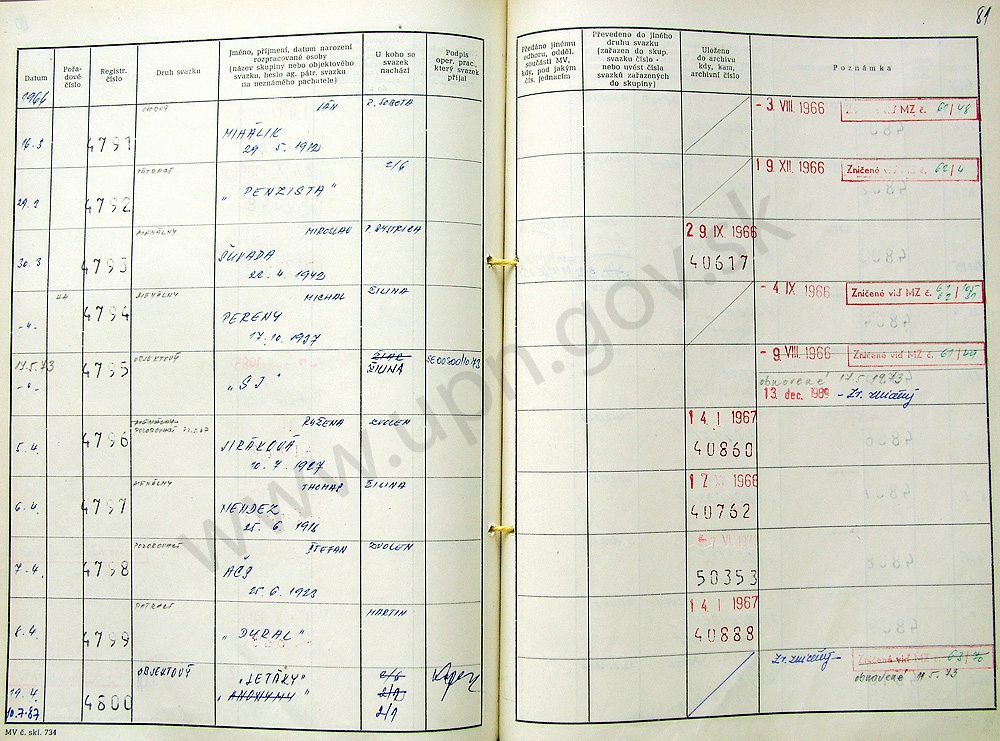 81
Datum
Pořadové číslo
Registr. číslo
Druh svazku
Jméno, příjmení, datum narození
rozpracované osoby
(název skupiny nebo objektového
svazku, heslo ag. pátr. svazku
na neznámého pachatele)
U koho se
svazek
nachází
Podpis
oper. prac.,
který svazek
přijal
Předáno jinému
odboru, odděl.
součásti MV,
kdy, pod jakým
čís. jednacím
Převedeno do jiného
druhu svazku
(zařazen do skup.
svazku číslo -
nebo uvést čísla
svazků zařazených
do skupiny)
Uloženo
do archivu
kdy, kam,
archivní číslo
Poznámka
1966
JÁN R. SOBOTA
- 3. VIII. 1966 viď MZ č. 61/48
16.3 4791 MIHÁLIK
29. 5. 1912
2/6
1 9. XII. 1966 Zničené MZ č. 62/4
4792 „PENZISTA"
SIGNÁLNY MIROSLAV P. BYSTRICA
2 9. IX. 1966
30.3 4793 ŠUVADA
40617
22. 4. 1942
SIGNÁLNY MICHAL ŽILINA
- 4. IX. 1966 Zničené viď MZ č.
-"- 4794 PERENY
17. 10. 1937
17.5.73 OBJEKTOVÝ ŽIAR
- 9. VIII. 1966 Zničené viď MZ č.
-"- 4795 „SJ" ŽILINA
obnovené 17.5.1973
13. dec. 1989 - Zv. zničený
POZOROVACÍ RUŽENA ZVOLEN
1 4. I. 1967
5. 4. 4796 JIRÁKOVÁ
40860
10. 7. 1927
SIGNÁLNY THOMAS ŽILINA
1966
6. 4. 4797 MENDEZ
40762
25. 6. 1918
POZOROVACÍ ŠTEFAN ZVOLEN
7. 4. 4798 AČS
50353
25. 6. 1923
PÁTRACÍ MARTIN
1 4. I. 1967
8. 4. 4799 „DURAL"
40888
OBJEKTOVÝ „LETÁKY" 2/6
Zv. zničený Zničené viď MZ č. 63/70
19. 4. 4800 „ANONYMY" 2/1
obnovené 11.5.73
10.7.87 2/1
MV č. skl. 734
www.upn.gov.sk